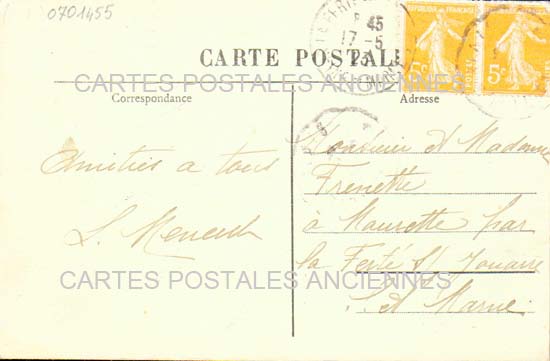 0701455
45
17-5
REPUBLIQUE FRANÇAISE
CARTE POSTALE
5c
5c
POSTES
CARTES POSTALES ANCIENNES
Correspondance
Adresse
Monsieur et Madame
Amitiés a tous
Frenette
à Mourette par
la Ferté St Jouarre
CARTES POSTALES ANCIENNES
S. et Marne